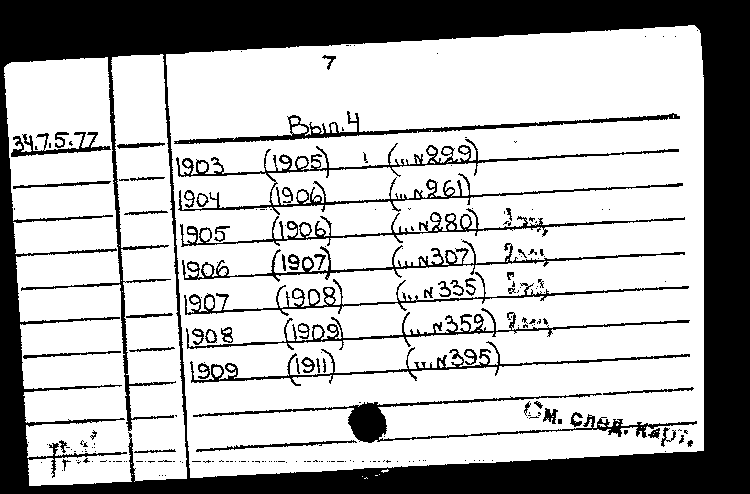 7
Вып.4
34.7.5.77
1903 (1905) (... №229)
1904 (1906) (... №261)
1905 (1906) (... №280) 2 экз,
1906 (1907) (... №307) 2 экз,
1907 (1908) (... №335) 2 экз,
1908 (1909) (... №352) 2 экз,
1909 (1911) (... №395)
См. след. карт.